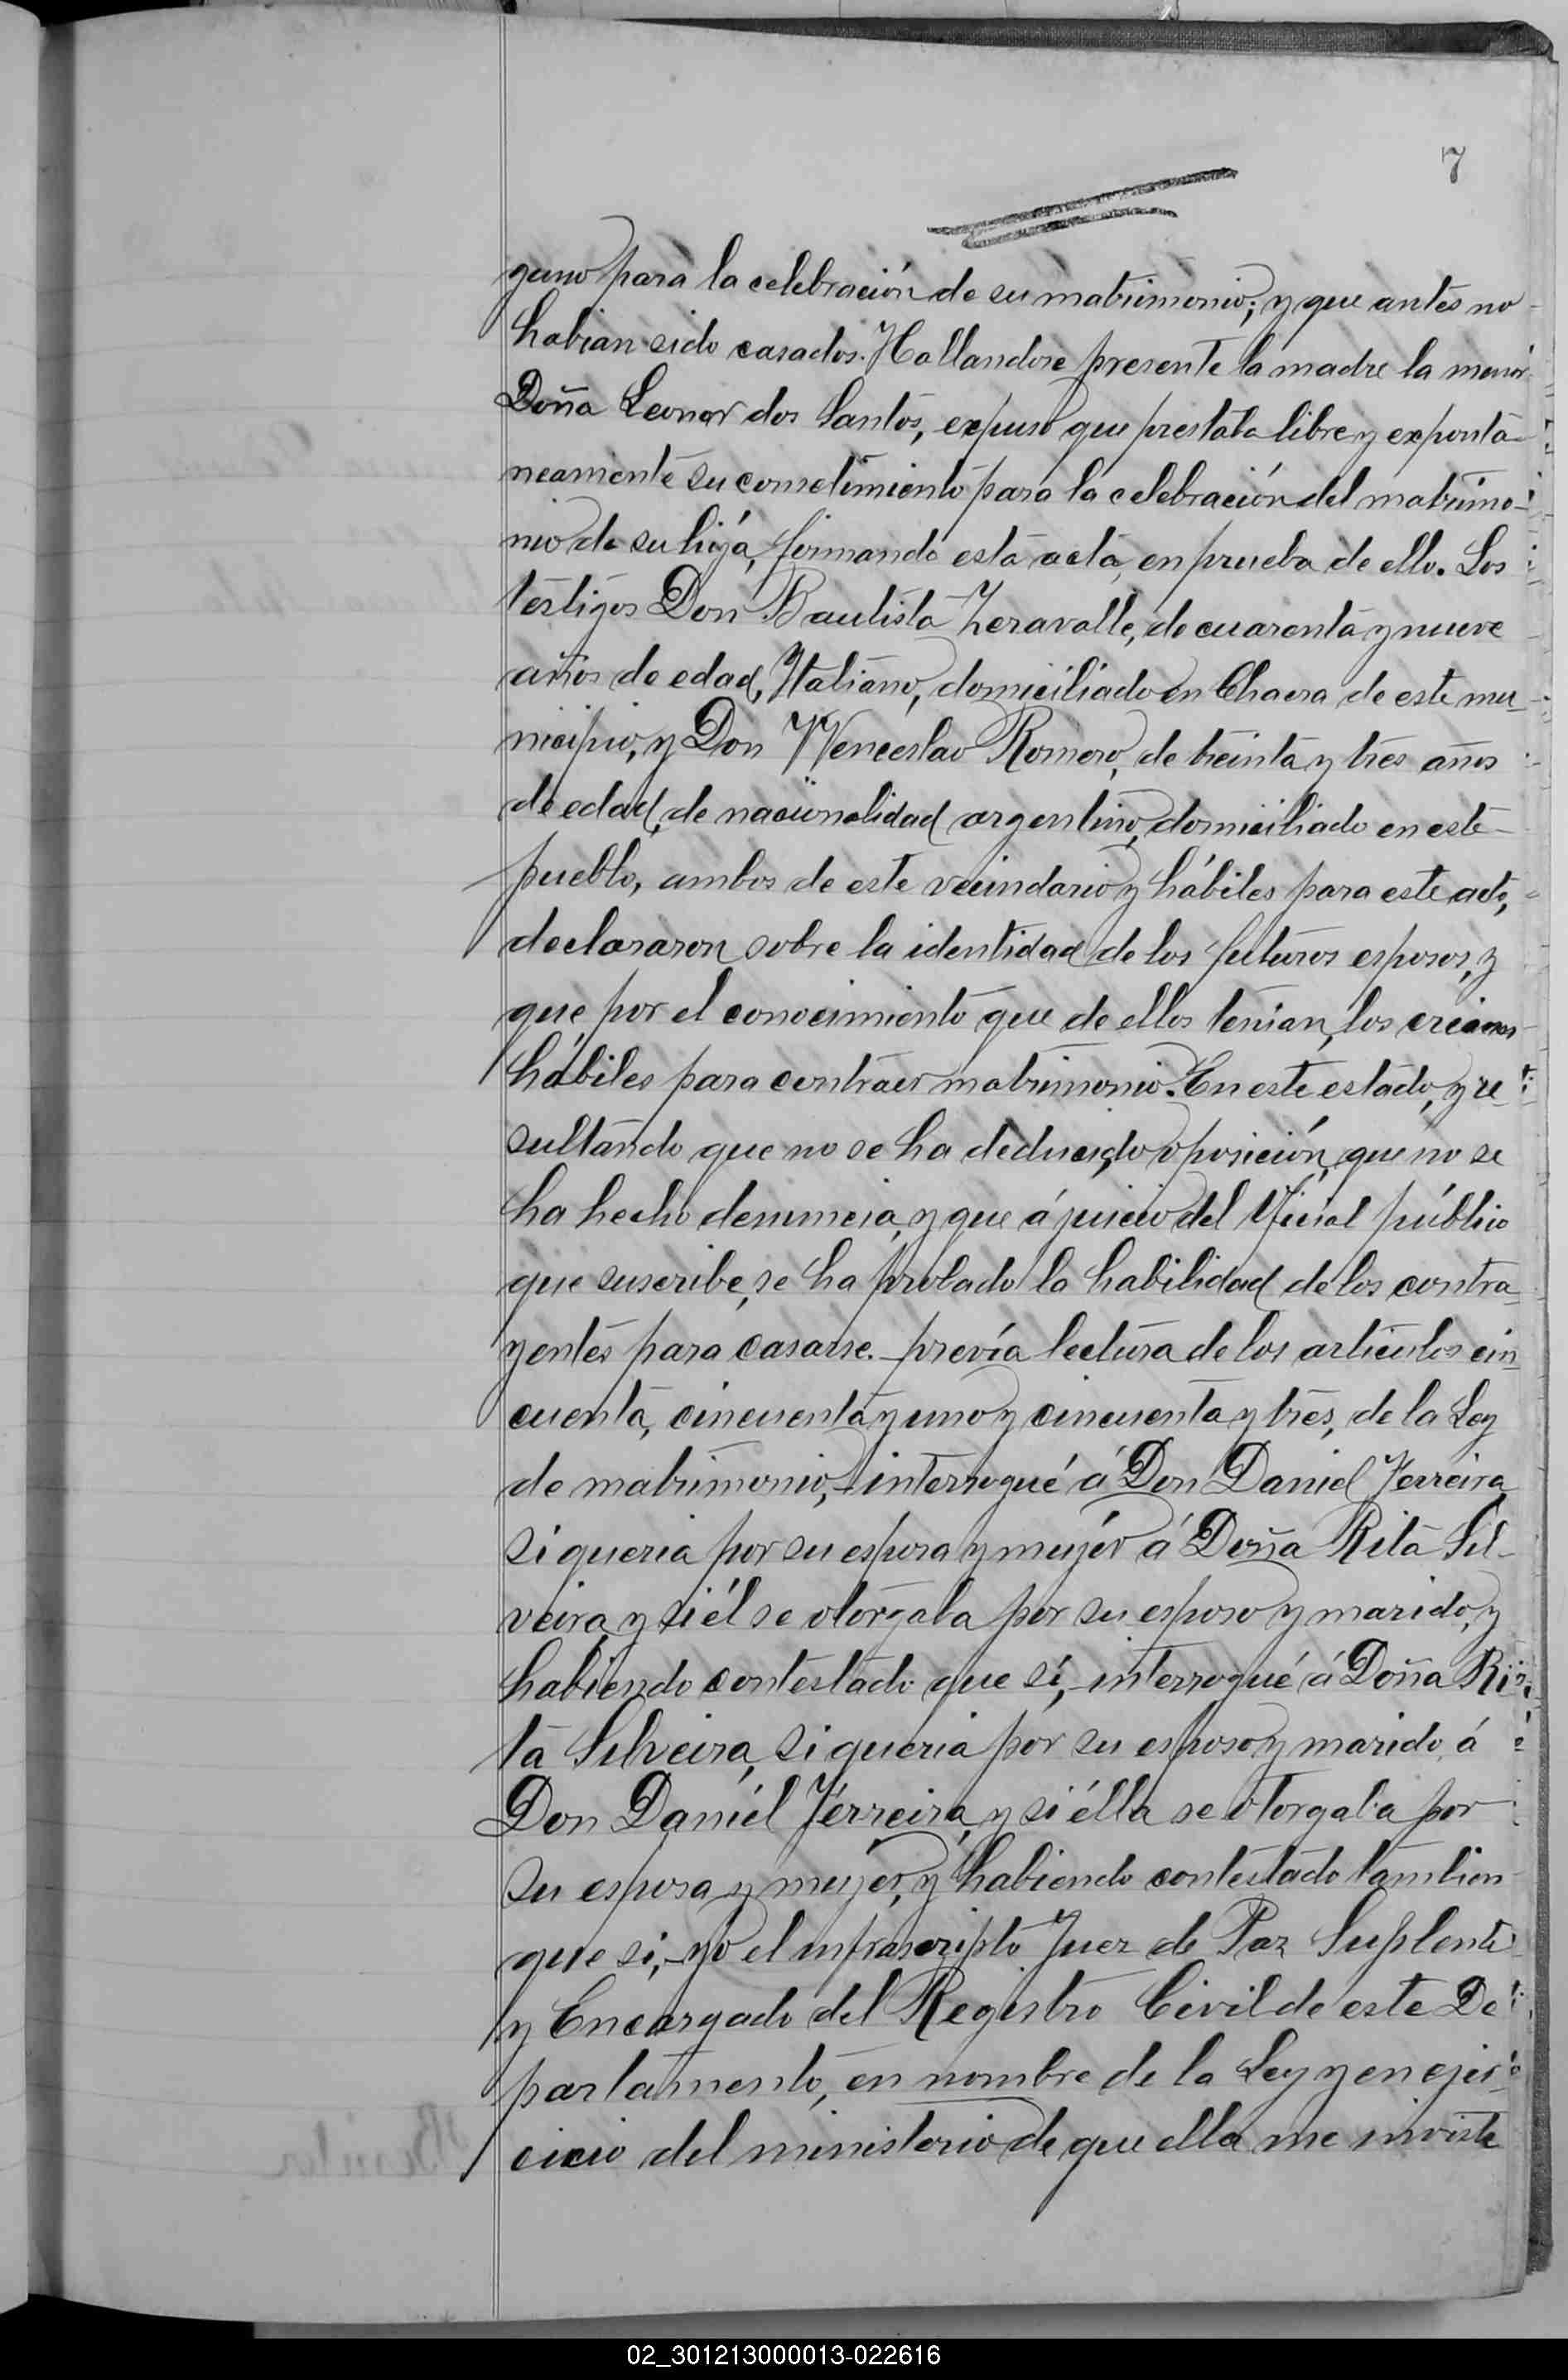 7
guno para la celebración de su matrimonio; y que antes no
habian sido casados. Hallandose presente la madre la menor
Doña Leonor dos Santos, expuso que prestaba libre y expontá-
neamente su consetimiento para la celebración del matrimo-
nio de su hija, firmando esta acta, en prueba de ello. Los
testigos Don Bautista Zeravalle, de cuarenta y nueve
años de edad, Italiano, domiciliado en Chacra de este mu-
nicipio, y Don Wenceslao Romero, de treinta y tres años
de edad, de nacionalidad argentino, domiciliado en este
pueblo, ambos de este vecindario y hábiles para este acto,
declararon sobre la identidad de los futuros esposos, y
que, por el conocimiento que de ellos tenian, los creian
hábiles para contraer matrimonio. En este estado, y re-
sultando que no se ha deducido oposición, que no se
ha hecho denuncia, y que á juicio del Oficial público
que suscribe, se ha probado la habilidad de los contra-
yentes para casarse. previa lectura de los articulos cin-
cuenta, cincuenta y uno y cincuenta y tres, de la Ley
de matrimonio,-interrogué á Don Daniel Ferreira,
si queria por su esposa y mujer á Doña Rita Sil-
veira, y si él se otorgaba por su esposo y marido, y
habiendo contestado que sí,-interrogué á Doña Ri-
ta Silveira, si queria por su esposo y marido, á
Don Daniel Ferreira, y si élla se otorgaba por
su esposa y mujer, y habiendo contestado tambien
que si,-yo el infrascripto Juez de Paz Suplente
y Encargado del Registro Civil de este De-
partamento, en nombre de la Ley y en ejer-
cicio del ministerio de que ella me inviste
02_301213000013-022616